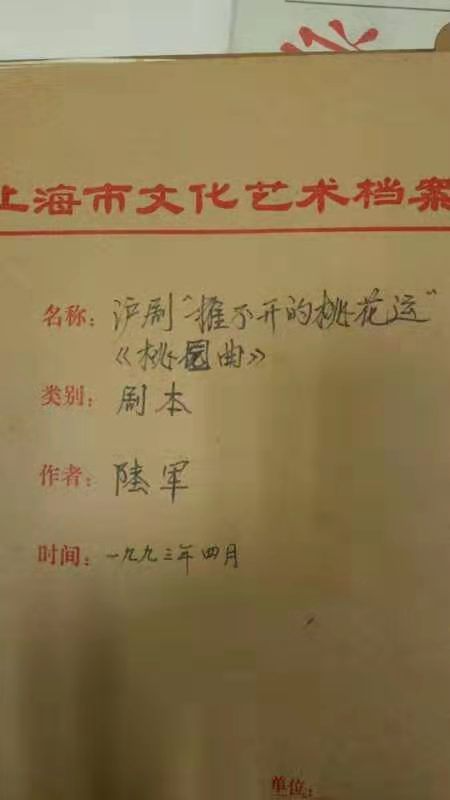 上海市文化艺术档案
名称：沪剧“推不开的桃花运”
《桃园曲》
类别：剧本
作者：陆军
时间：一九九三年四月
单位：